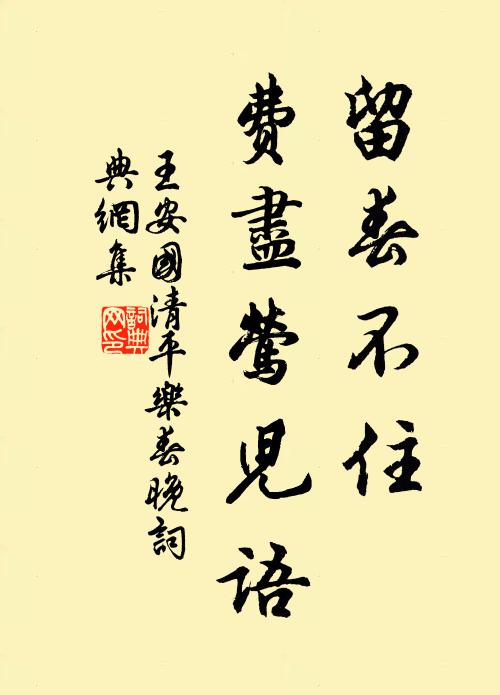 留春不住
費盡鶯児語
王安國清平樂春晚詞
典網集
詞典
网印